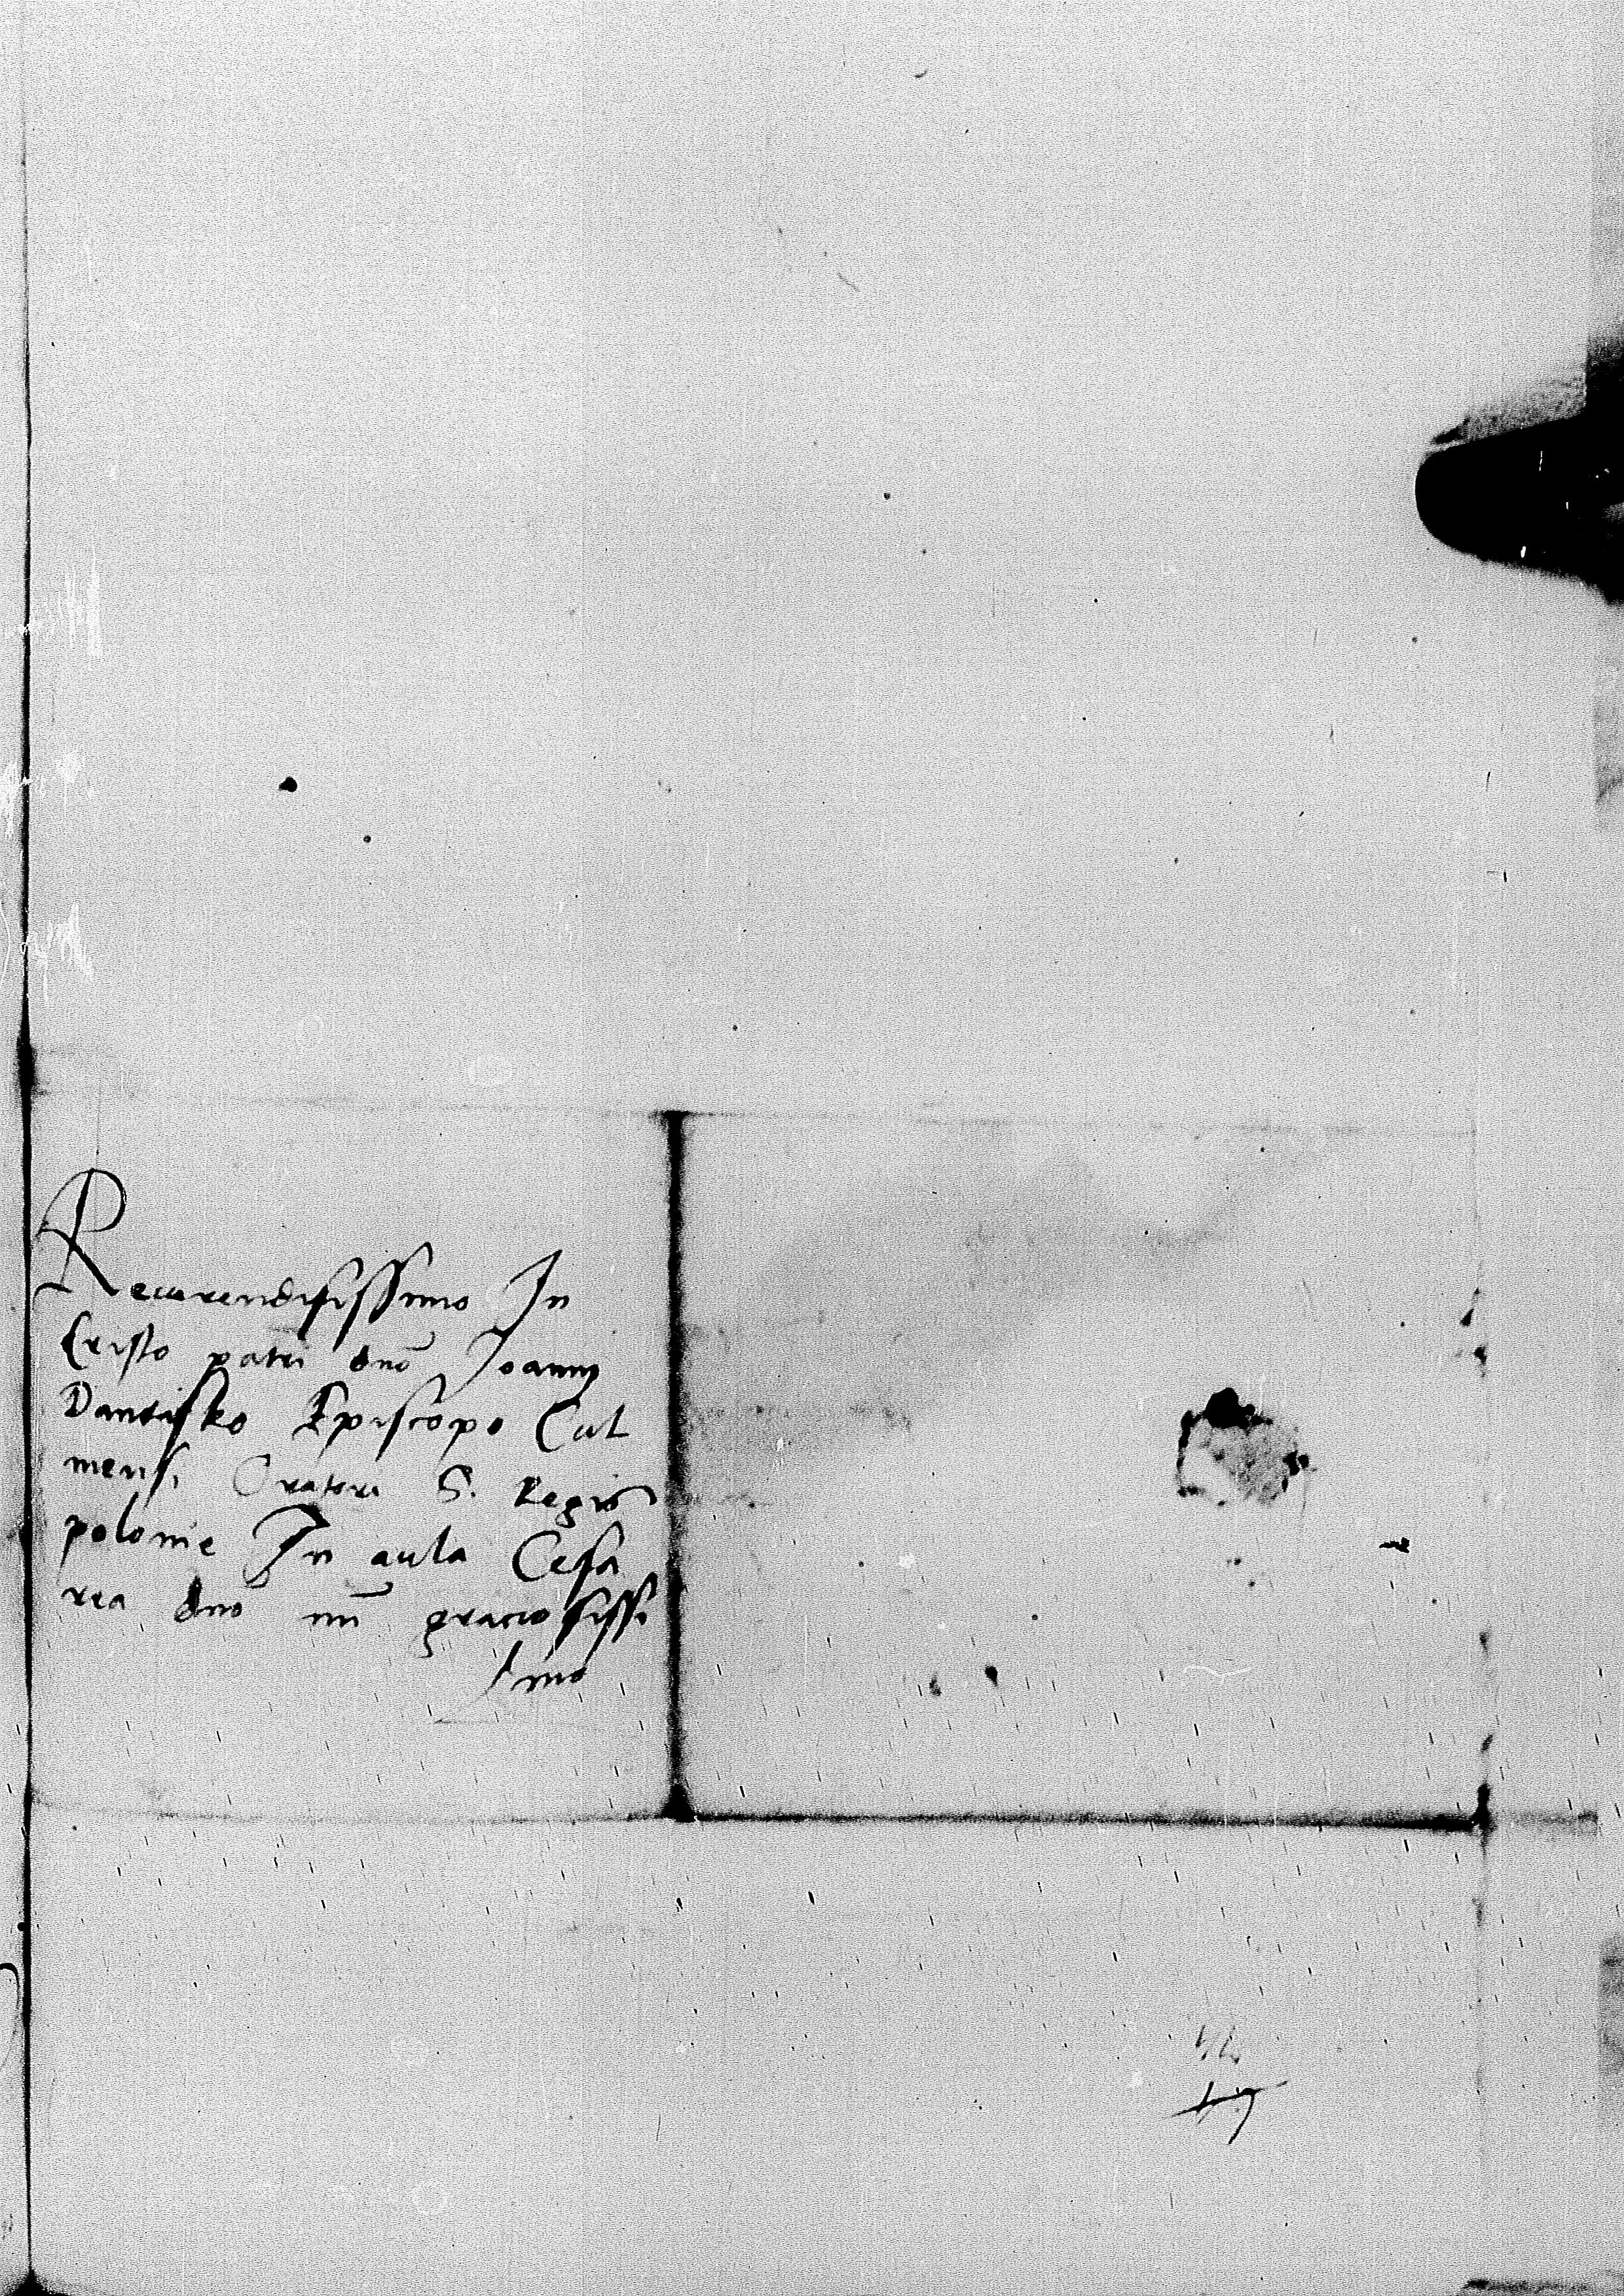 Reverendissimo In
Cristo patri dno Joanni
Dantisko Episcopo Cul
mensi Oratori S. Regis
polonie In aula Cesa
rea dno nrī graciosissi
mo